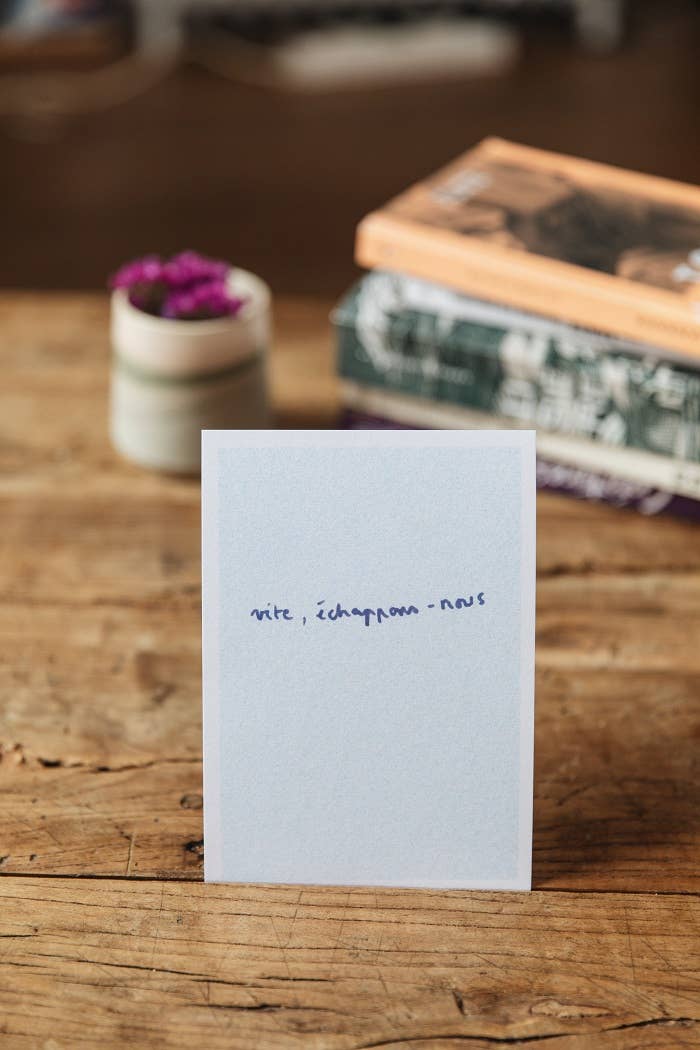 vite, échappons-nous